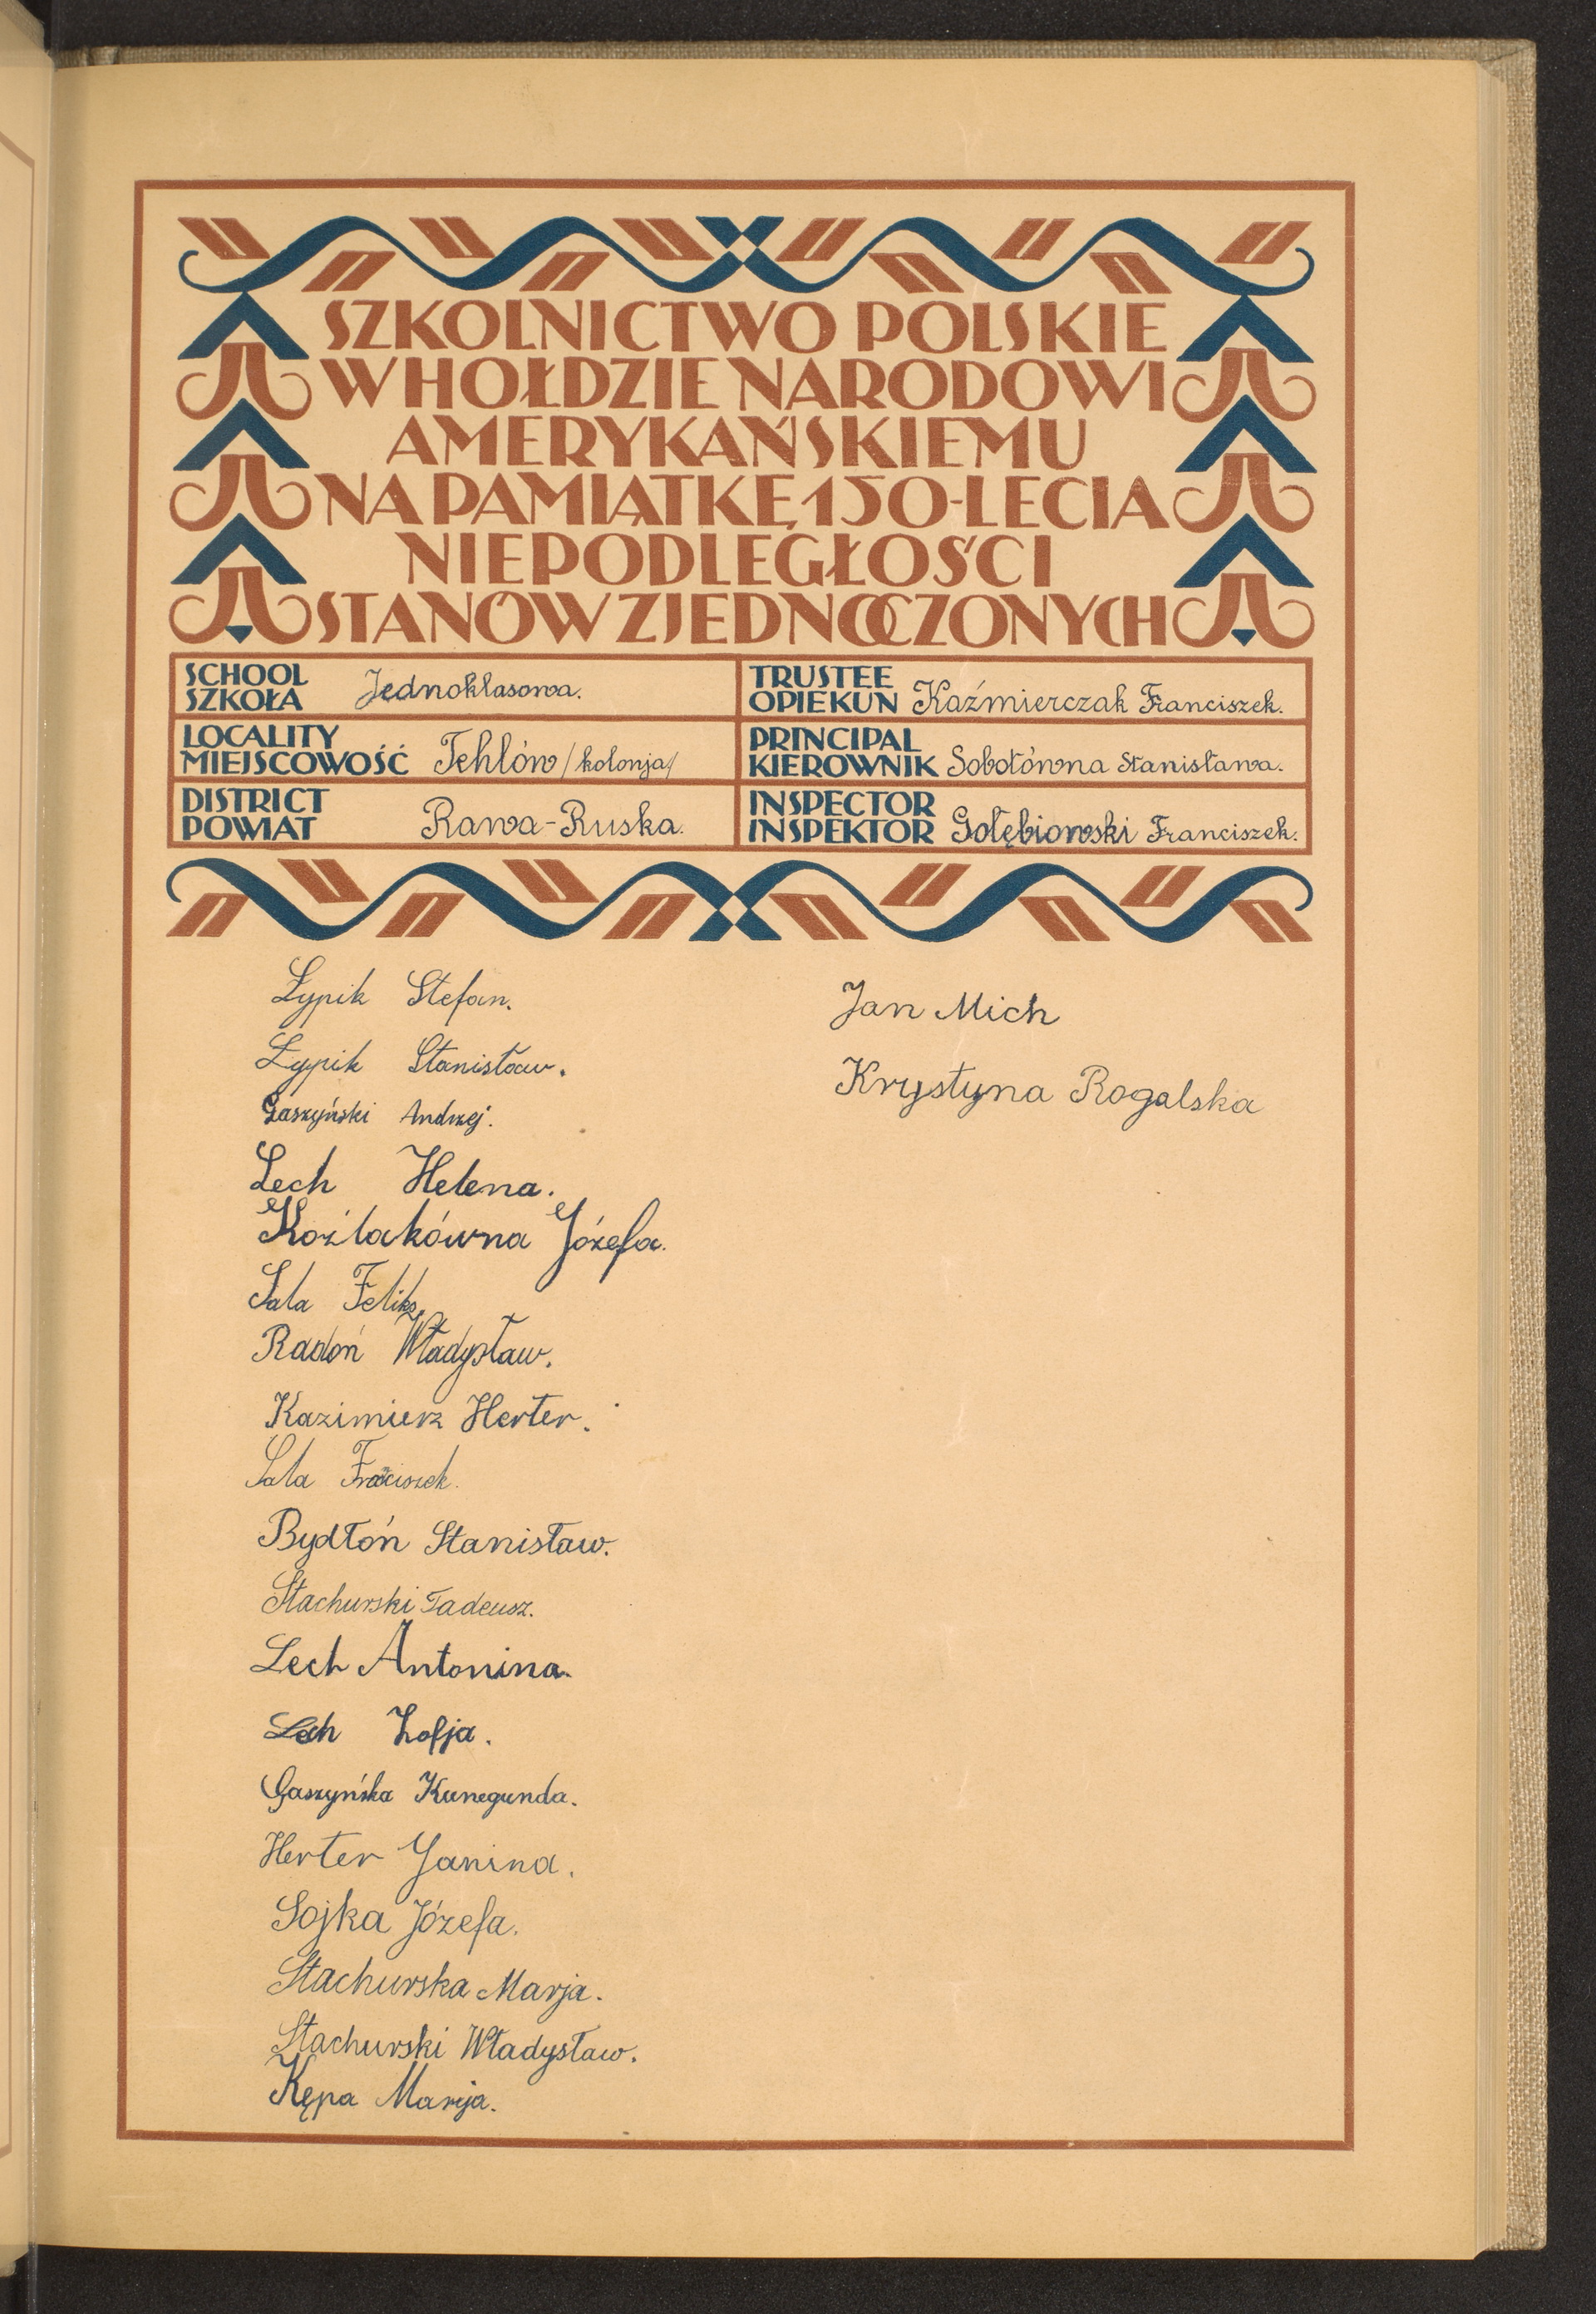 SZKOLNICTWO POLSKIE
W HOŁDZIE NARODOWI
AMERYKAŃSKIEMU
NA PAMIĄTKĘ 150-LECIA
NIEPODLEGŁOŚCI
STANÓW ZJEDNOCZONYCH
SCHOOL
SZKOŁA Jednoklasowa.
TRUSTEE
OPIEKUN Kaźmierczak Franciszek.
LOCALITY
MIEJSCOWOŚĆ Tehlów /kolonja/
PRINCIPAL
KIEROWNIK Sobotówna Stanisława.
DISTRICT
POWIAT Rawa-Ruska.
INSPECTOR
INSPEKTOR Gołębiowski Franciszek.
Łypik Stefan.
Łypik Stanisław.
Gaszyński Andrzej.
Lech Helena.
Koźlakówna Józefa.
Sala Feliks.
Radoń Władysław.
Kazimierz Herter.
Sala Franciszek.
Bydłoń Stanisław.
Stachurski Tadeusz.
Lech Antonina.
Lech Zofja.
Gaszyńska Kunegunda.
Herter Janina.
Sojka Józefa.
Stachurska Marja.
Stachurski Władysław.
Kępa Marja.
Jan Mich
Krystyna Rogalska